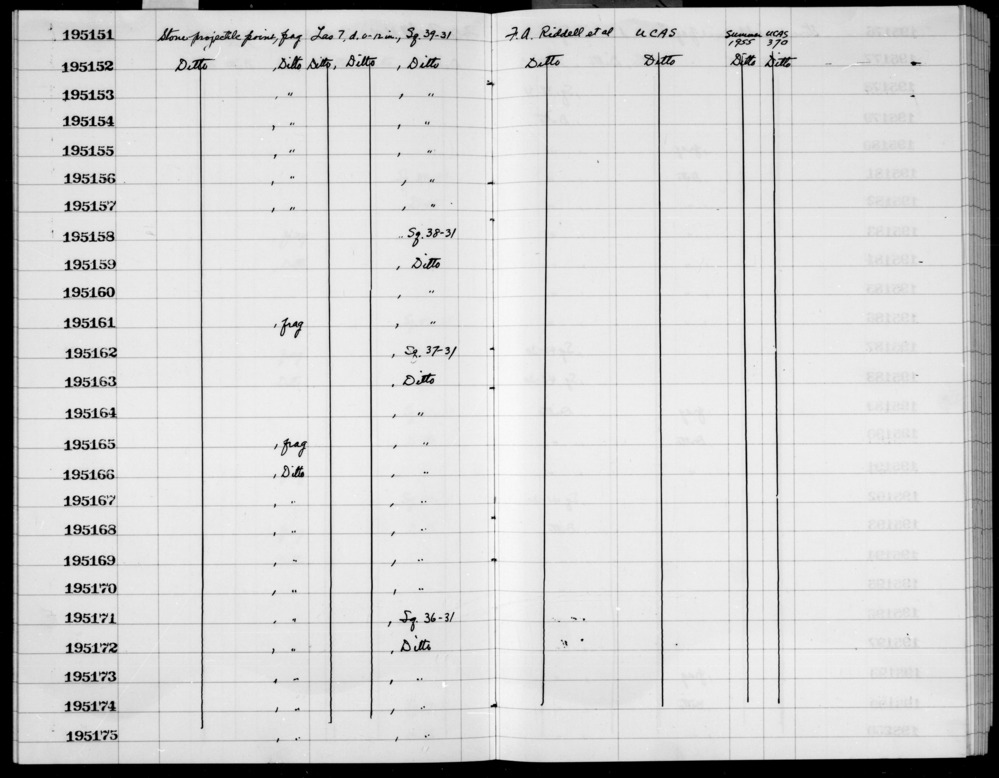 195151 Stone projectile point, frag Las 7, d. 0-12 in., Sq. 39-31 F.A. Riddell et al UCAS Summer 1955 UCAS 370
195152 Ditto , Ditto Ditto, Ditto , Ditto Ditto Ditto Ditto Ditto
195153 , " , "
195154 , " , "
195155 , " , "
195156 , " , "
195157 , " , "
195158 Sq. 38-31
195159 , Ditto
195160 , "
195161 , frag , "
195162 , Sq. 37-31
195163 , Ditto
195164 , "
195165 , frag , "
195166 , Ditto , "
195167 , " , "
195168 , " , "
195169 , " , "
195170 , " , "
195171 , " , Sq. 36-31
195172 , " , Ditto
195173 , " , "
195174 , " , "
195175 , " , "